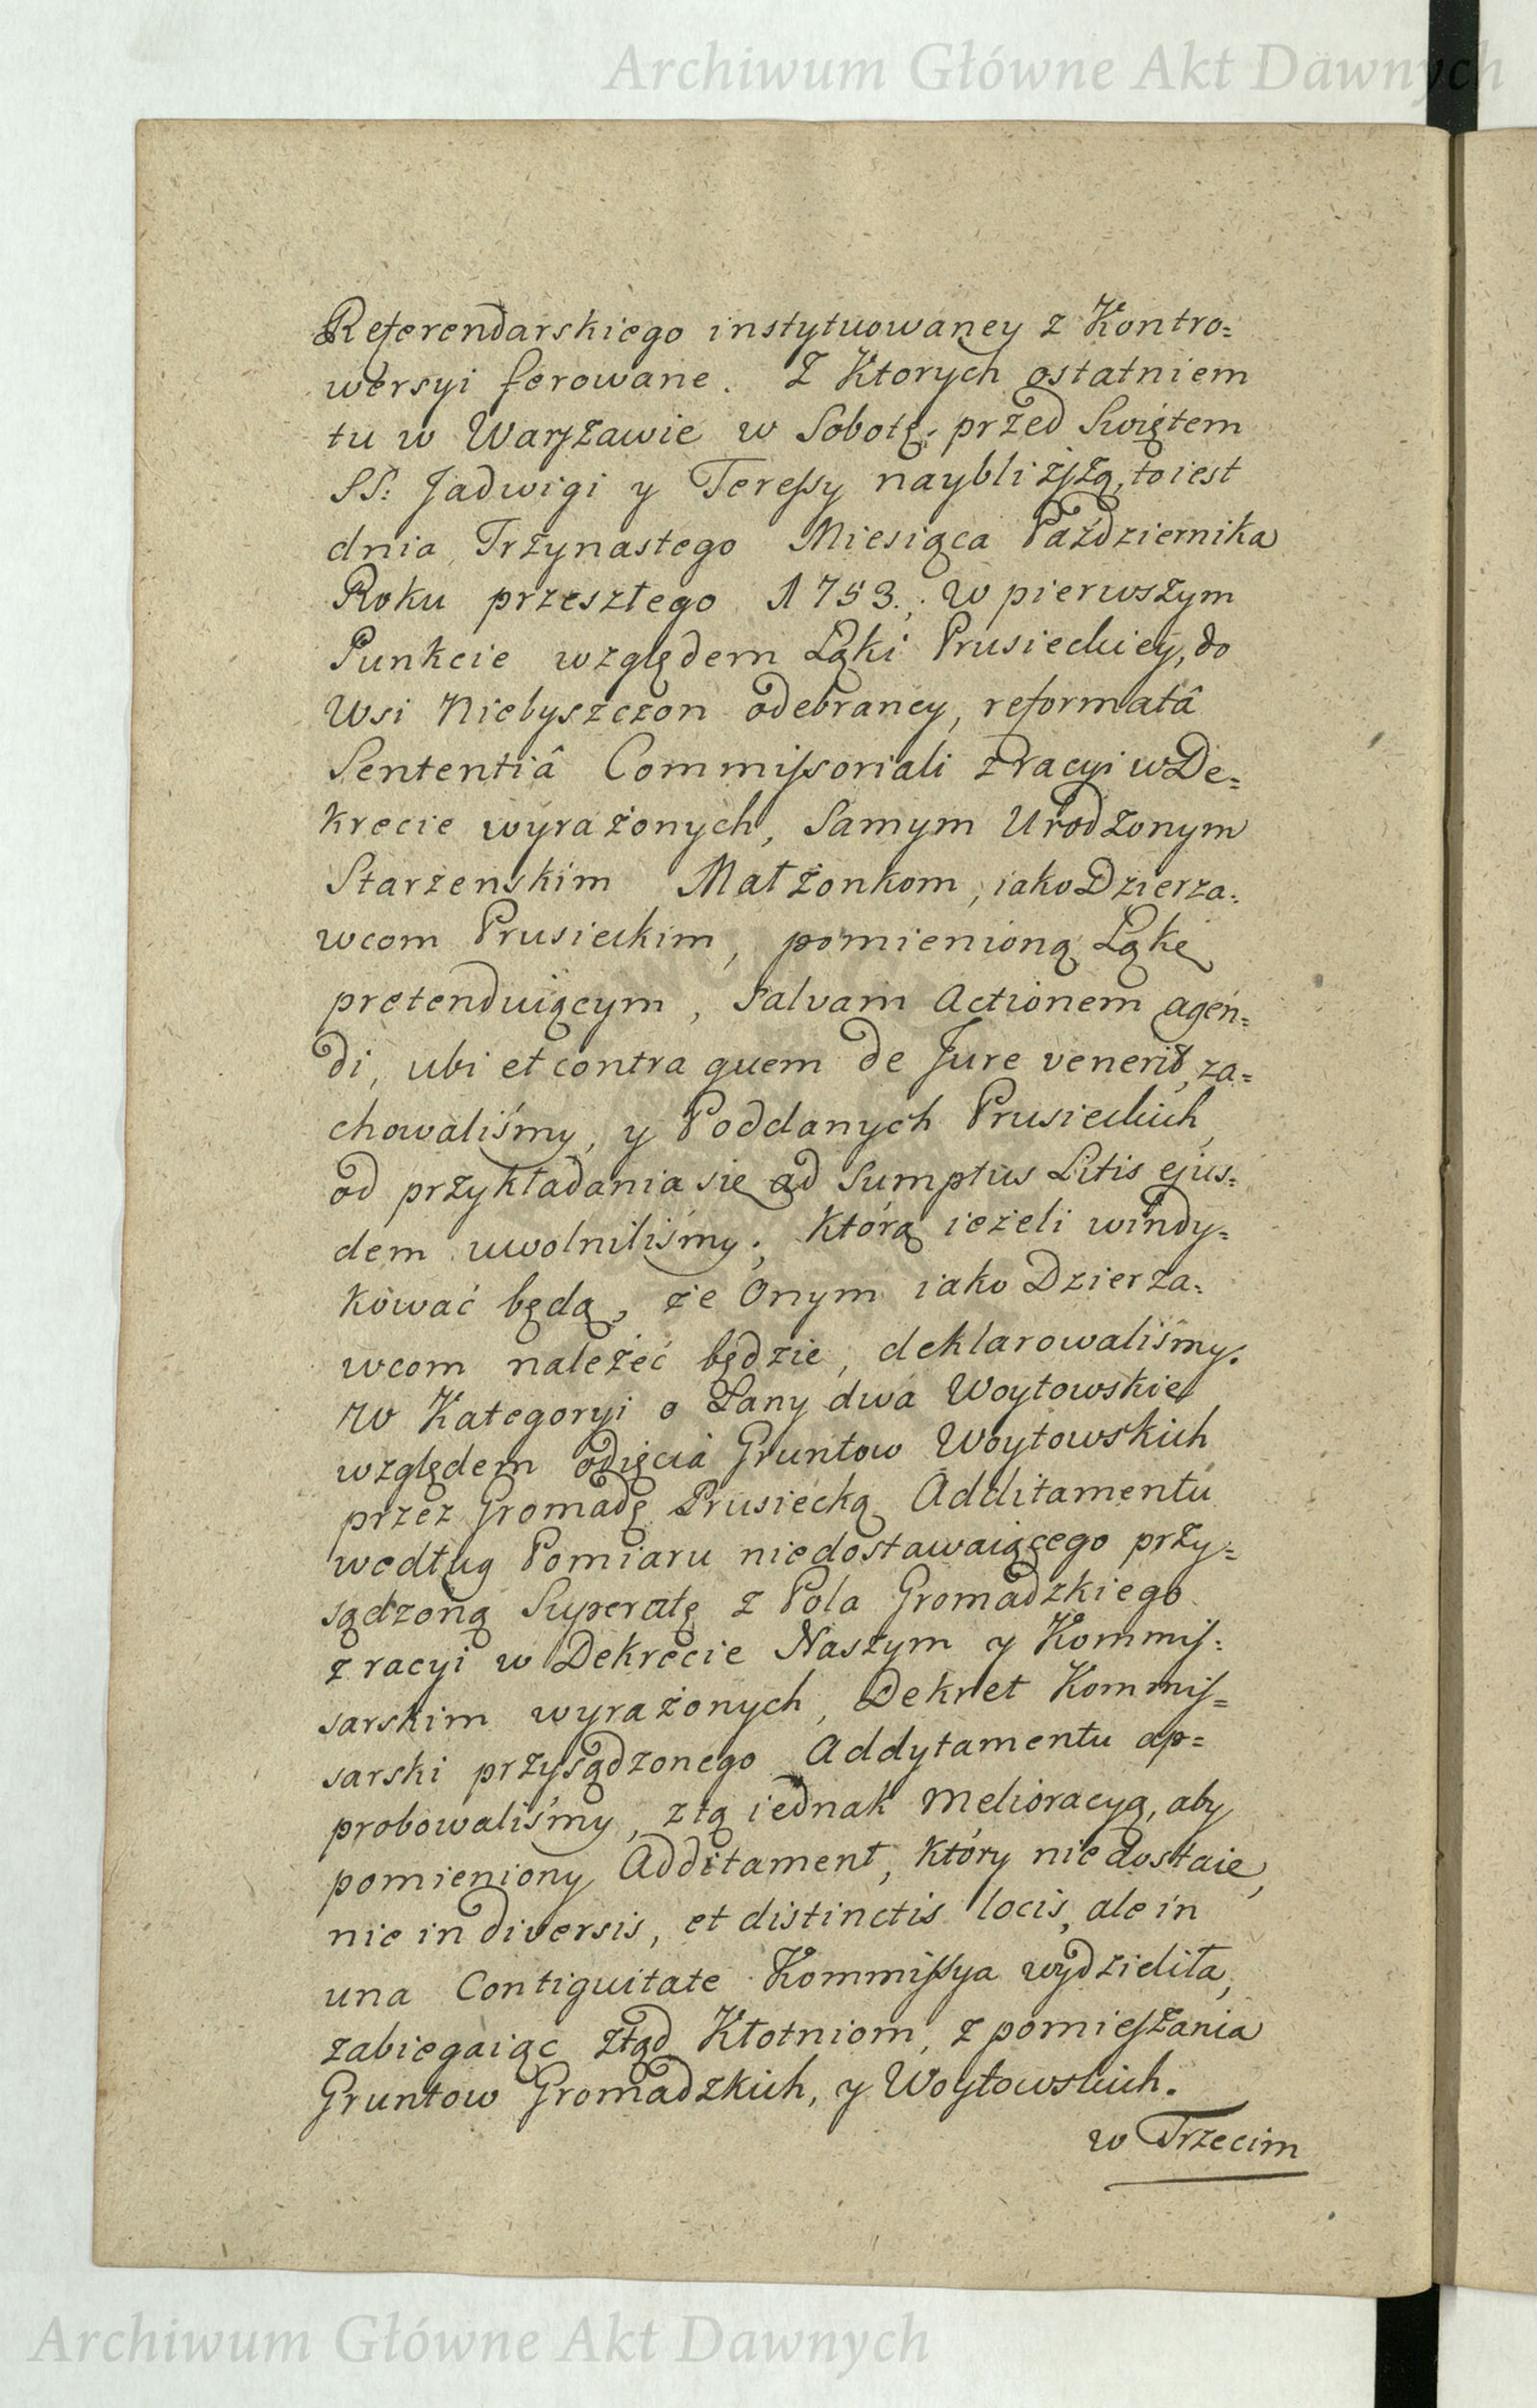 Archiwum Główne Akt Dawnych
Referendarskiego instytuowaney z Kontro=
wersyi ferowane. Z Ktorych ostatniem
tu w Warszawie w Sobotę, przed Swiętem
SS: Jadwigi y Teressy naybliższą, toiest
dnia Trzynastego Miesiąca Października
Roku przeszłego 1753., w pierwszym
Punkcie względem Łąki Prusieckiey, do
Wsi Niebyszczon odebraney, reformatâ
Sententiâ Commissoriali z racyi w De=
krecie wyrażonych, Samym Urodzonym
Starzenskim Małżonkom, iako Dzierza=
wcom Prusieckim, pomienioną Łąkę
pretenduiącym, Salvam Actionem agen=
di, ubi et contra quem de Jure venerit, za=
chowaliśmy, y Poddanych Prusieckich,
od przykładania się ad Sumptus Litis ejus=
dem uwolniliśmy; Którą ieżeli windy=
kować będą, że Onym iako Dzierza=
wcom należeć będzie, deklarowaliśmy.
W Kategoryi o Łany dwa Woytowskie
względem odięcia Gruntow Woytowskich
przez Gromadę Prusiecką Additamentu
według Pomiaru niedostawaiącego przy=
sądzoną Superatę z Pola Gromadzkiego
z racyi w Dekrecie Naszym y Kommis=
sarskim wyrażonych, Dekret Kommis=
sarski przysądzonego Addytamentu ap=
probowaliśmy, z tą iednak Melioracyą, aby
pomieniony Additament, który niedostaie,
nie in diversis, et distinctis locis, ale in
una Contiguitate Kommissya wydzieliła,
zabiegaiąc ztąd Kłotniom, z pomieszania
Gruntow Gromadzkich, y Woytowskich.
w Trzecim
Archiwum Główne Akt Dawnych